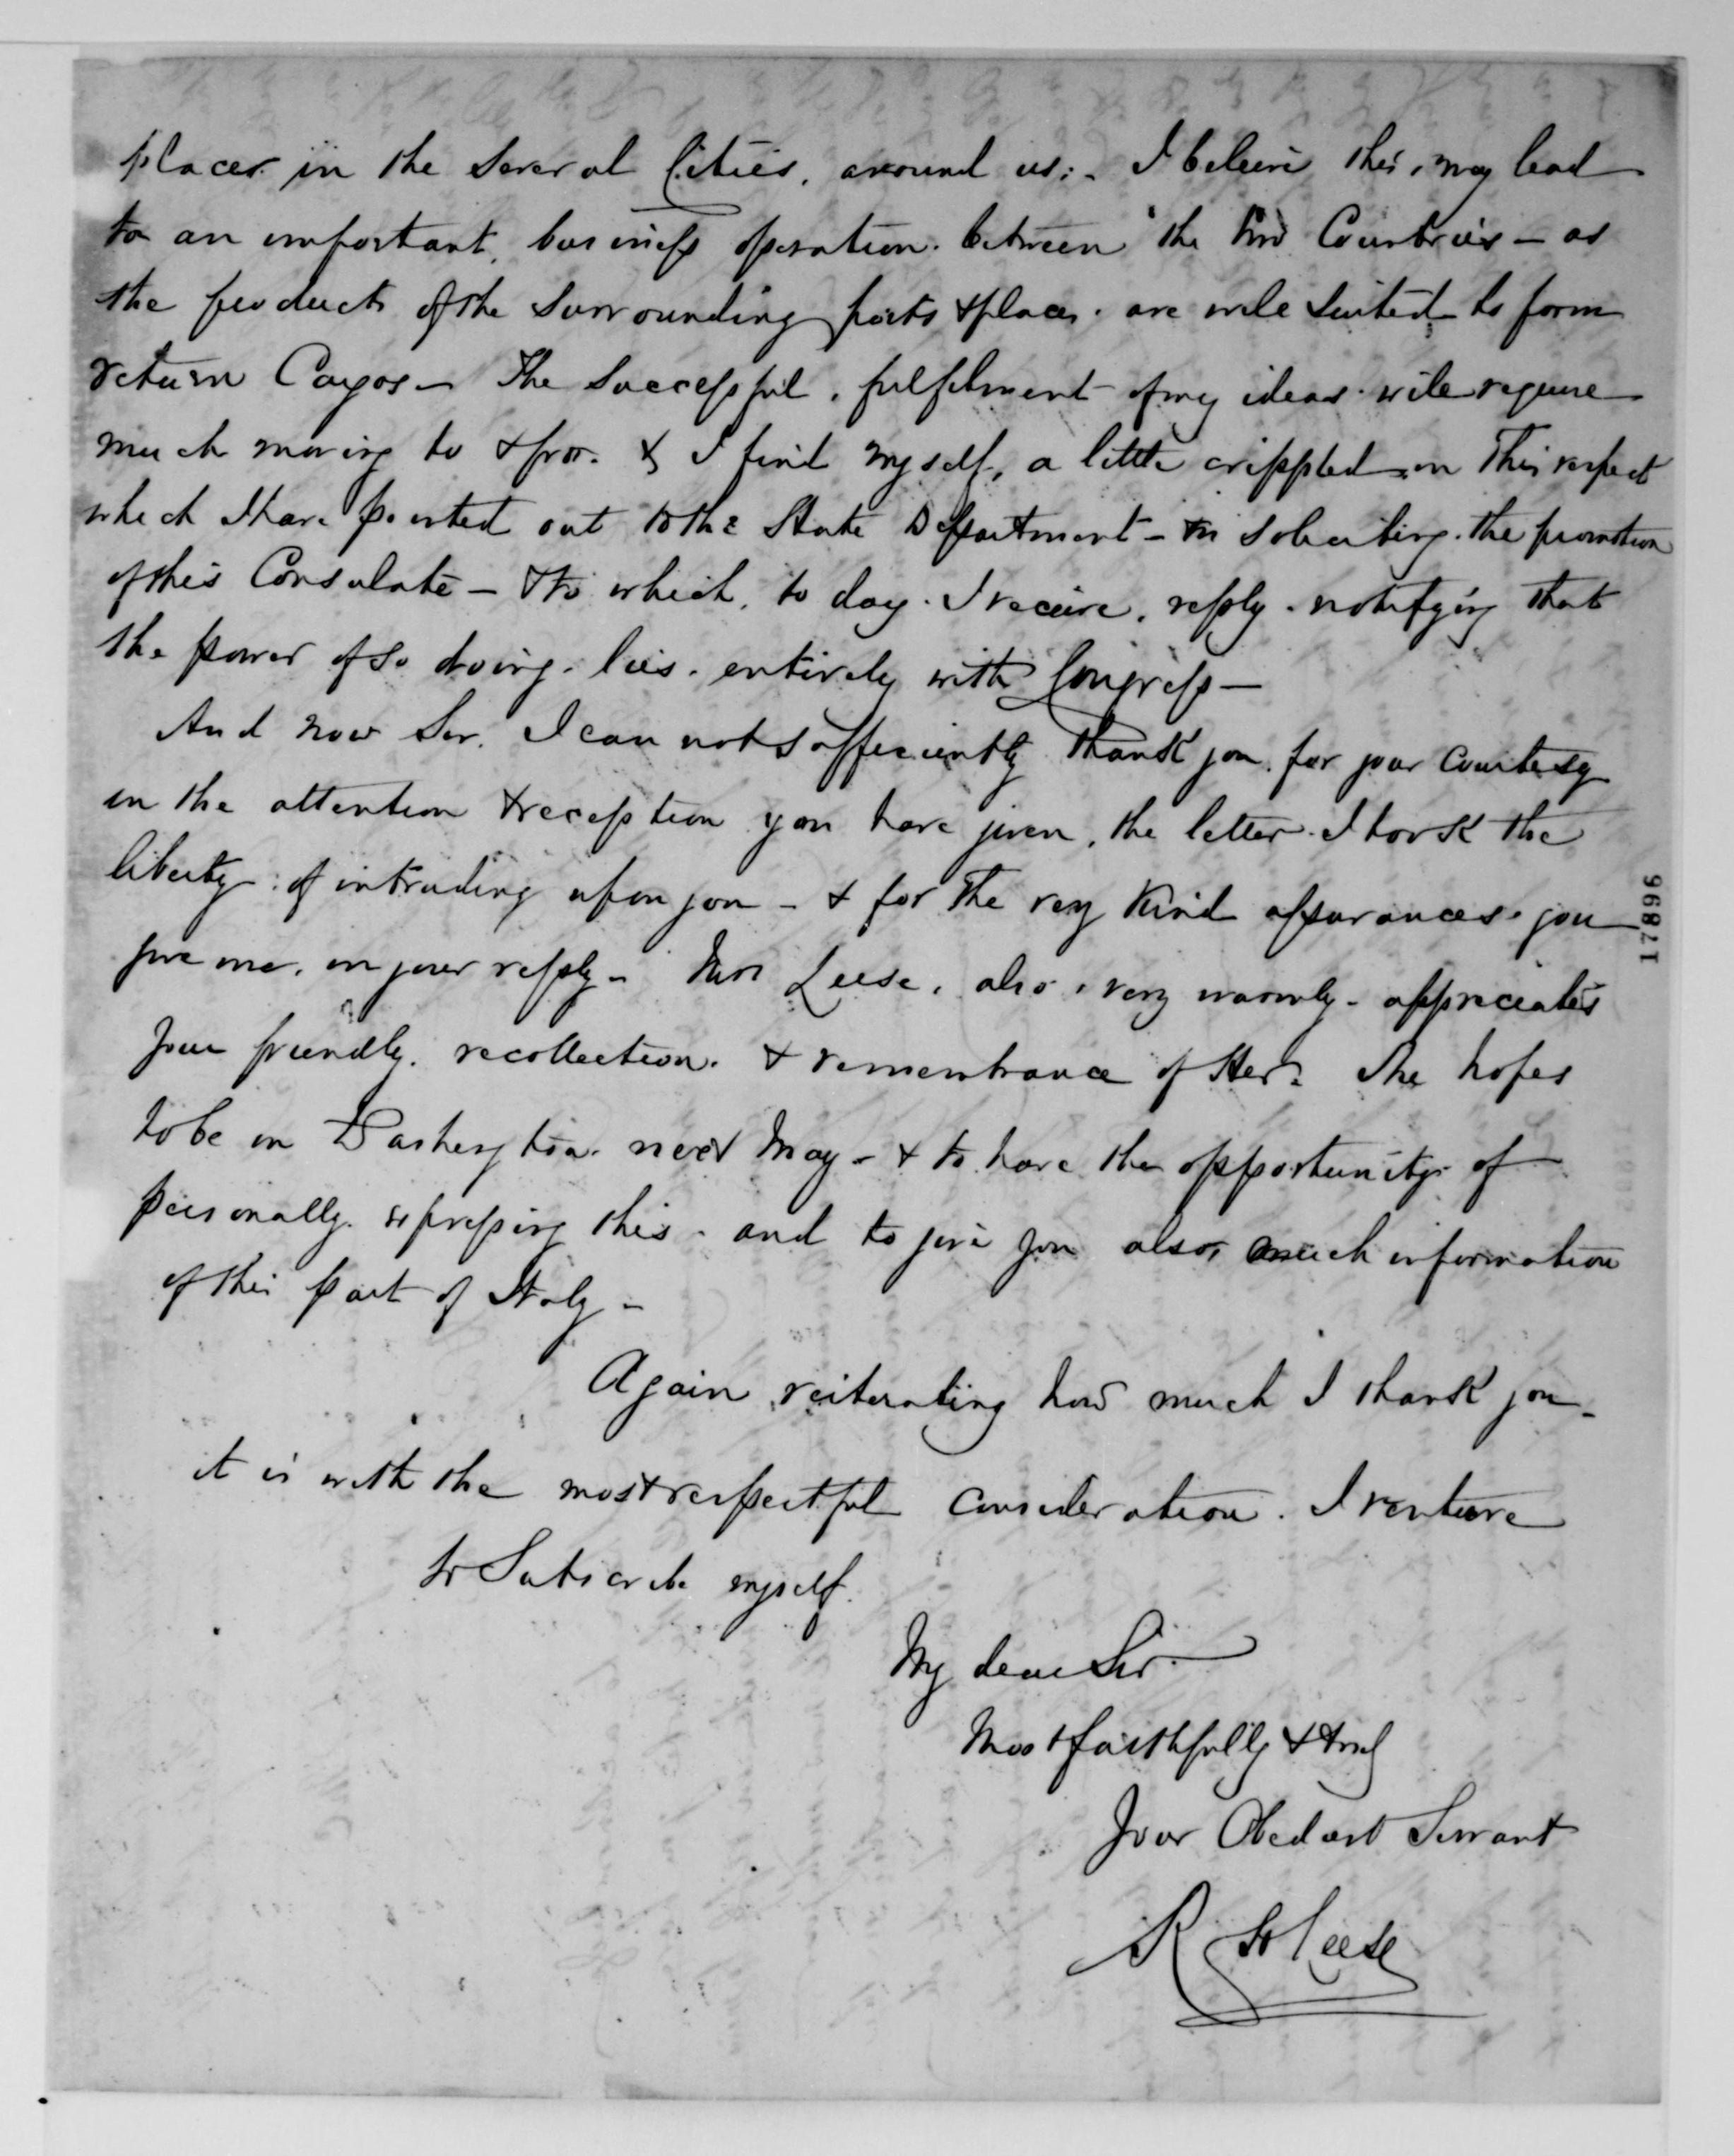 places in the several Cities, around us:- I beleive this, may lead
to an important, business operation. between the two Countries - as
the products of the surrounding ports & places. are well suited to form
return Cargos - The successful, fulfilment of my ideas will require
much moving to & fro. & I find myself, a little crippled in this respect
which I have pointed out to the State Department - in soliciting. the promotion
of this Consulate - & to which, to day. I receive, reply. notifying that
the power of so doing. lies. entirely with Congress -
And now Sir, I can not sufficiently thank you, for your courtesy
in the attention & reception you have given, the letter. I took the
liberty: of intruding upon you - & for the very kind assurances. you
give me, in your reply - Mrs Leese, also, very warmly - appreciates
your friendly. recollection. & remembrance of Her. She hopes
to be in Washington. next May - & to have the opportunity of
personally. expressing this. and to give you also, much information
of this part of Italy -
Again reiterating how much I thank you -
it is with the most respectful consideration. I venture
to Subscribe myself.
My dear Sir -
Most faithfully & truly
Your Obedient Servant
R Leese
17896